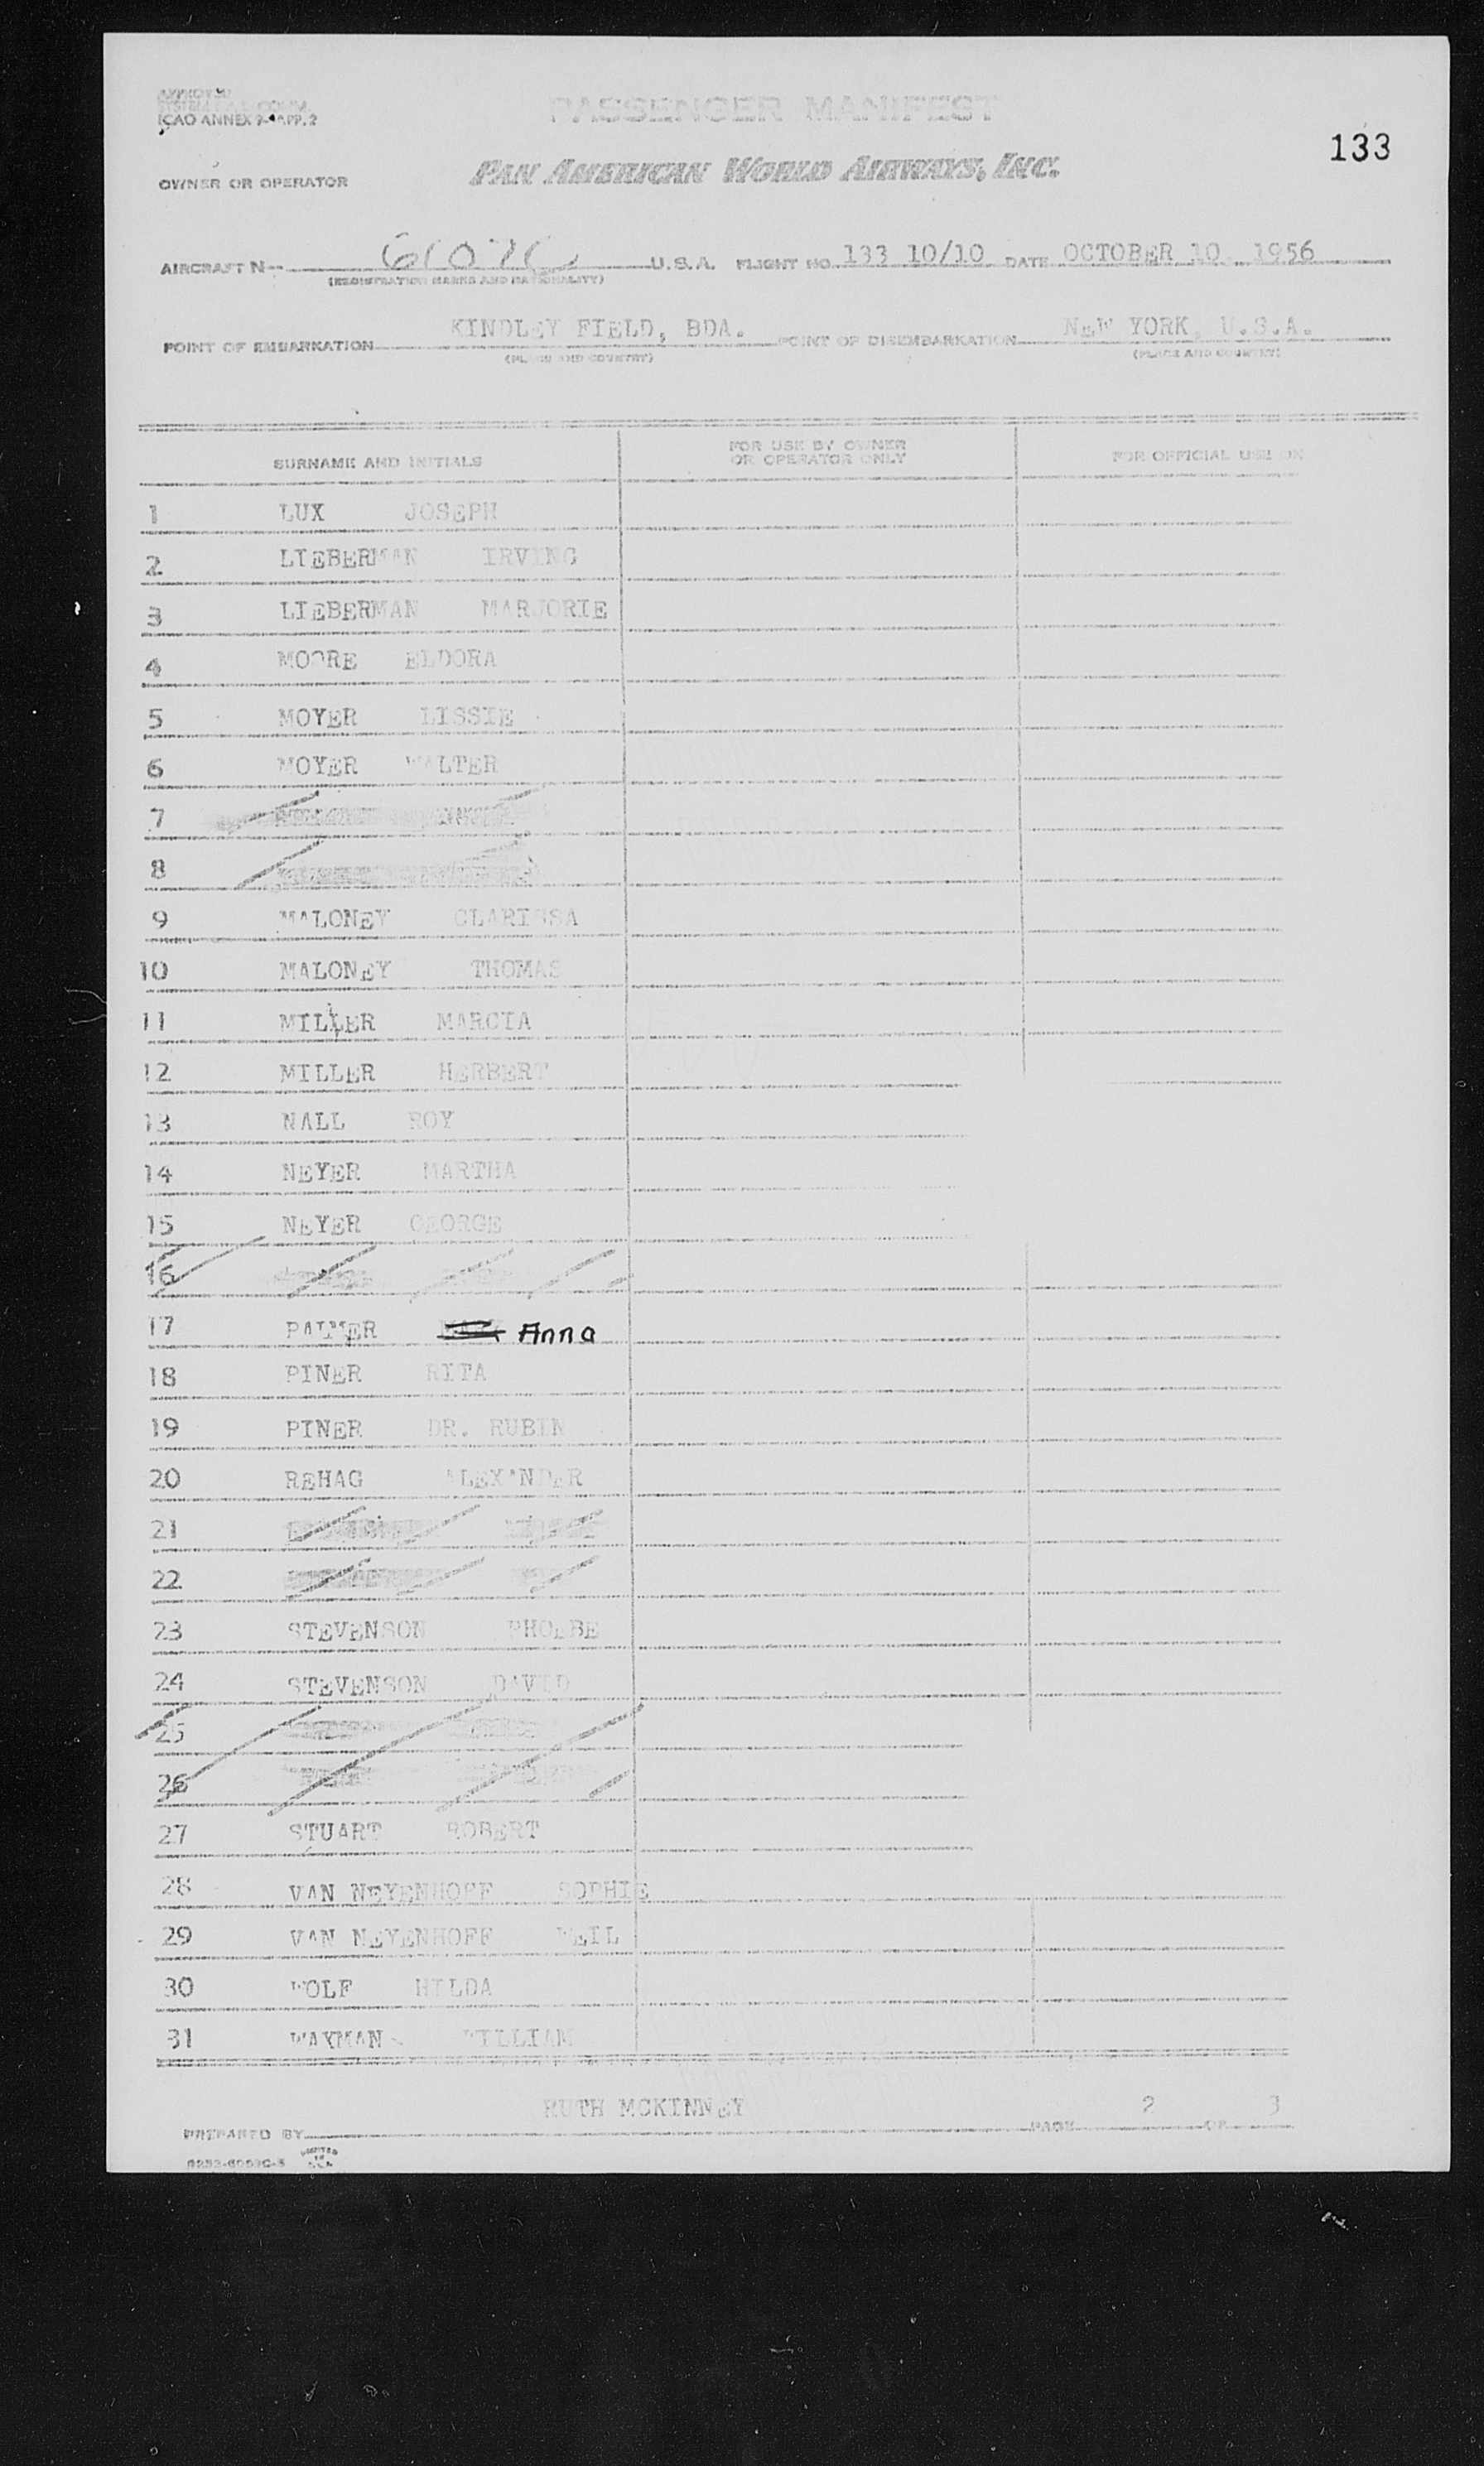 ICAO ANNEX 9-APP. 2
PASSENGER MANIFEST
133
OWNER OR OPERATOR PAN AMERICAN WORLD AIRWAYS, INC.
AIRCRAFT N U.S.A. FLIGHT NO. 133 10/10 DATE OCTOBER 10, 1956
(REGISTRATION MARKS AND NATIONALITY)
POINT OF EMBARKATION KINDLEY FIELD, BDA. POINT OF DISEMBARKATION NEW YORK, U.S.A.
(PLACE AND COUNTRY) (PLACE AND COUNTRY)
SURNAME AND INITIALS FOR USE BY OWNER OR OPERATOR ONLY FOR OFFICIAL USE ON
1 LUX JOSEPH
2 LIEBERMAN IRVING
3 LIEBERMAN MARJORIE
4 MOORE ELDORA
5 MOYER LISSIE
6 MOYER WALTER
7
8
9 MALONEY CLARISSA
10 MALONEY THOMAS
11 MILLER MARCIA
12 MILLER HERBERT
13 NALL ROY
14 NEYER MARTHA
15 NEYER GEORGE
16
17 PALMER Anna
18 PINER RITA
19 PINER DR. RUBIN
20 REHAG ALEXANDER
21
22
23 STEVENSON PHOEBE
24 STEVENSON DAVID
25
26
27 STUART ROBERT
28 VAN NEYENHOFF SOPHIE
29 VAN NEYENHOFF NEIL
30 WOLF HILDA
31 WAXMAN WILLIAM
RUTH MCKINNEY
PREPARED BY PAGE 2 OF 3